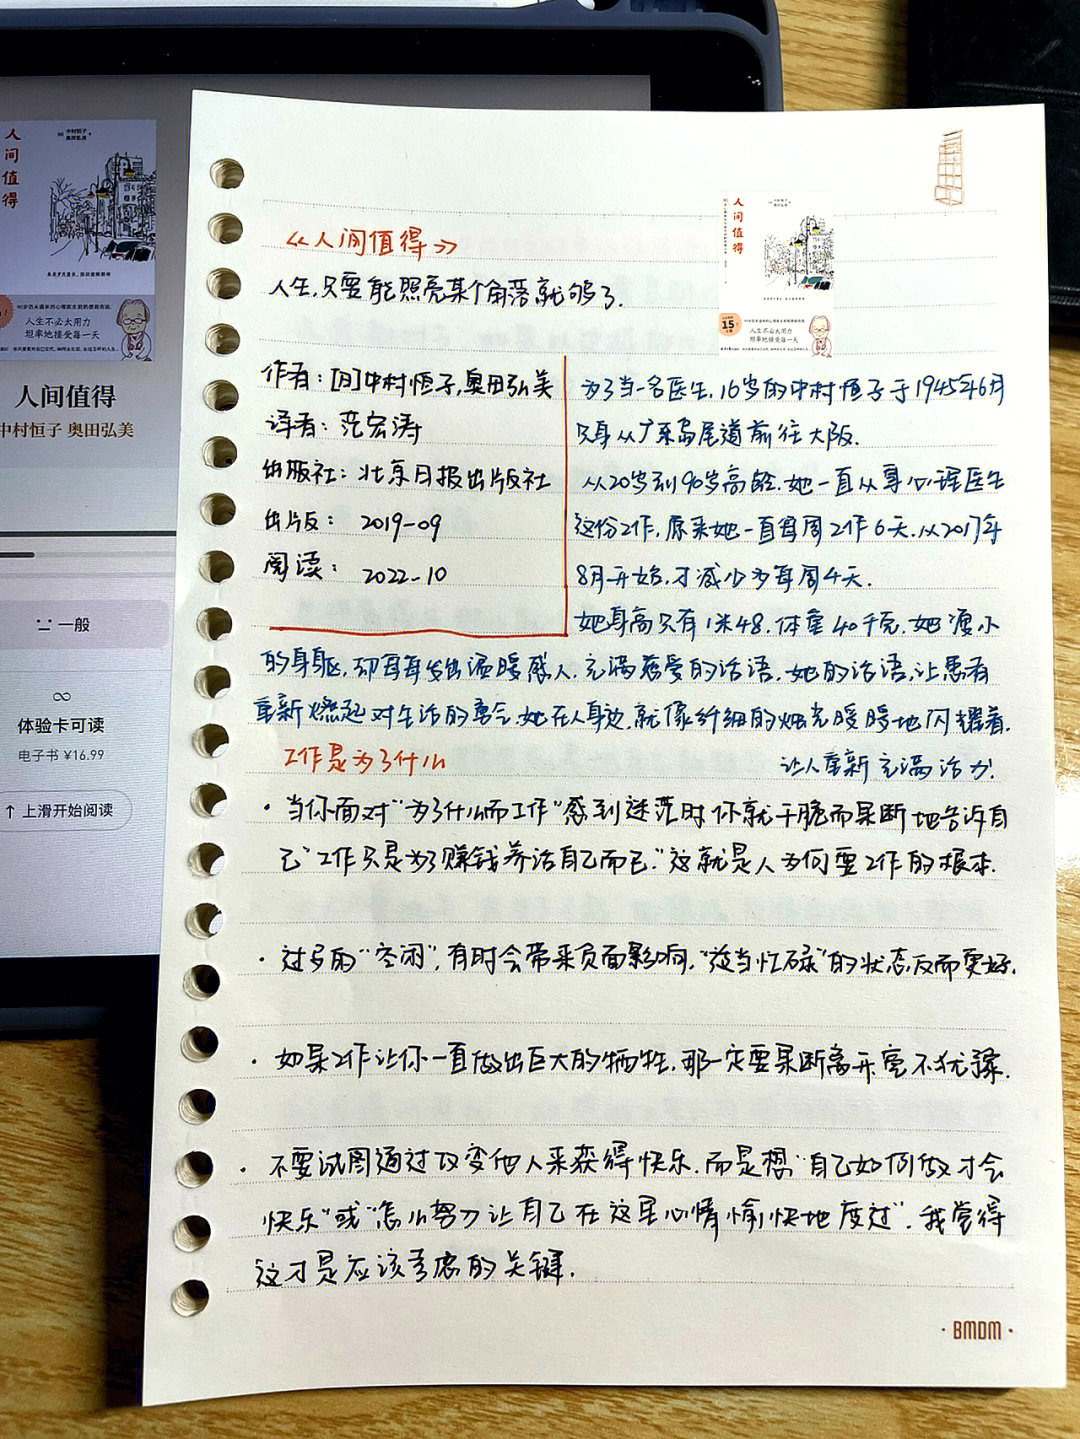 人间值得
中村恒子
奥田弘美
人生不必太用力
坦率地接受每一天
人间值得
中村恒子 奥田弘美
一般
体验卡可读
电子书 ¥16.99
↑ 上滑开始阅读
《人间值得》
人生,只要能照亮某个角落就够了.
人间值得
15
人生不必太用力
坦率地接受每一天
作者:[日]中村恒子,奥田弘美
译者:范宏涛
出版社:北京日报出版社
出版: 2019-09
阅读: 2022-10
为了当一名医生,16岁的中村恒子于1945年6月
只身从广岛尾道前往大阪.
从20岁到90岁高龄.她一直从事心理医生
这份工作,原来她一直每周工作6天.从2017年
8月开始,才减少为每周4天.
她身高只有1米48.体重40千克.她瘦小
的身躯,却每每发出温暖感人.充满慈爱的话语.她的话语,让患者
重新燃起对生活的勇气.她在人身边,就像纤细的烛光暖暖地闪耀着.
让人重新充满活力.
工作是为了什么
·当你面对"为了什么而工作"感到迷茫时你就干脆而果断地告诉自
己"工作只是为了赚钱养活自己而已."这就是人为何要工作的根本.
·过多的"空闲",有时会带来负面影响,"适当忙碌"的状态反而更好.
·如果工作让你一直做出巨大的牺牲,那一定要果断离开毫不犹豫.
·不要试图通过改变他人来获得快乐.而是想"自己如何做才会
快乐"或"怎么努力让自己在这里心情愉快地度过".我觉得
这才是应该考虑的关键.
·BMDM·